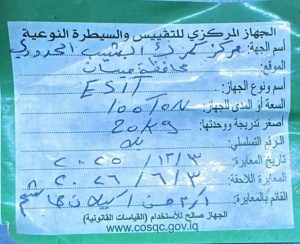 الجهاز المركزي للتقييس والسيطرة النوعية
اسم الجهة: مركز كمرك الشيب الحدودي
الموقع: محافظة ميسان
اسم ونوع الجهاز: ESIT
السعة أو المدى للجهاز: 100 TON
أصغر تدريجة ووحدتها: 20 Kg
الرقم التسلسلي:
تاريخ المعايرة: ٢٠٢٥/١٢/٣
المعايرة اللاحقة: ٢٠٢٦/٦/٣
القائم بالمعايرة:
الجهاز صالح للأستخدام (القياسات القانونية)
www.cosqc.gov.iq